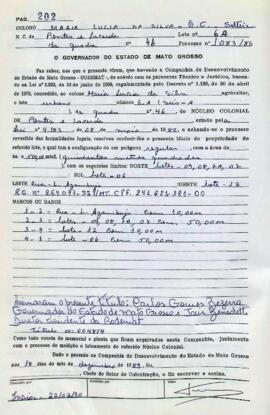 PAG. 202
COLONO MARIA LUCIA DA SILVA B.C. Solteira
N. C. de Pontes e Lacerda Lote nº 6A
da quadra nº 46 Processo nº 1083/86
O GOVERNADOR DO ESTADO DE MATO GROSSO
Faz saber, aos que a presente virem, que havendo a Companhia de Desenvolvimento
do Estado de Mato Grosso - CODEMAT -, de acordo com os pareceres Técnico e Jurídico, basea-
de abril de
1970, concedido ao colono Maria Lucia da Silva
lote urbano
da quadra nº 46, do NÚCLEO COLONIAL
DE Pontes e Lacerda criado pela
Lei nº 4.181, de 08 de maio, e achando-se o processo
revestido das formalidades legais, resolve conferir-lhe o presente título de propriedade do
referido lote, e sob a configuração de um polígono regular, com a área de
(quinhentos metros quadrados
) com os seguintes limites: NORTE lotes - 09, 08, 7A, 07
SUL lote - 06
ESTE OESTE lote - 12
MARCOS OU DADOS
1 - 2 = com 10,00m
2 - 3 = lotes - 09, 08, 7A, 07 com 50,00m
3 - 4 = lote 12 com 10,00m
4 - 1 = lote - 06 com 50,00m
Assinaram o presente título: Carlos Gomes Bezerra
Governador do Estado de Mato Grosso e
Diretor Presidente da Codemat
Título nº 004854
Como tudo consta do memorial e planta que foram arquivados nesta Companhia, juntamente
com o processo de medição e loteamento do referido Núcleo Colonial.
Dado o presente na Companhia de Desenvolvimento do Estado de Mato Grosso
aos 18 dias do mês de dezembro de 1989. Eu,
Chefe do Setor de Colonização, o fiz escrever e assino.
22/02/90